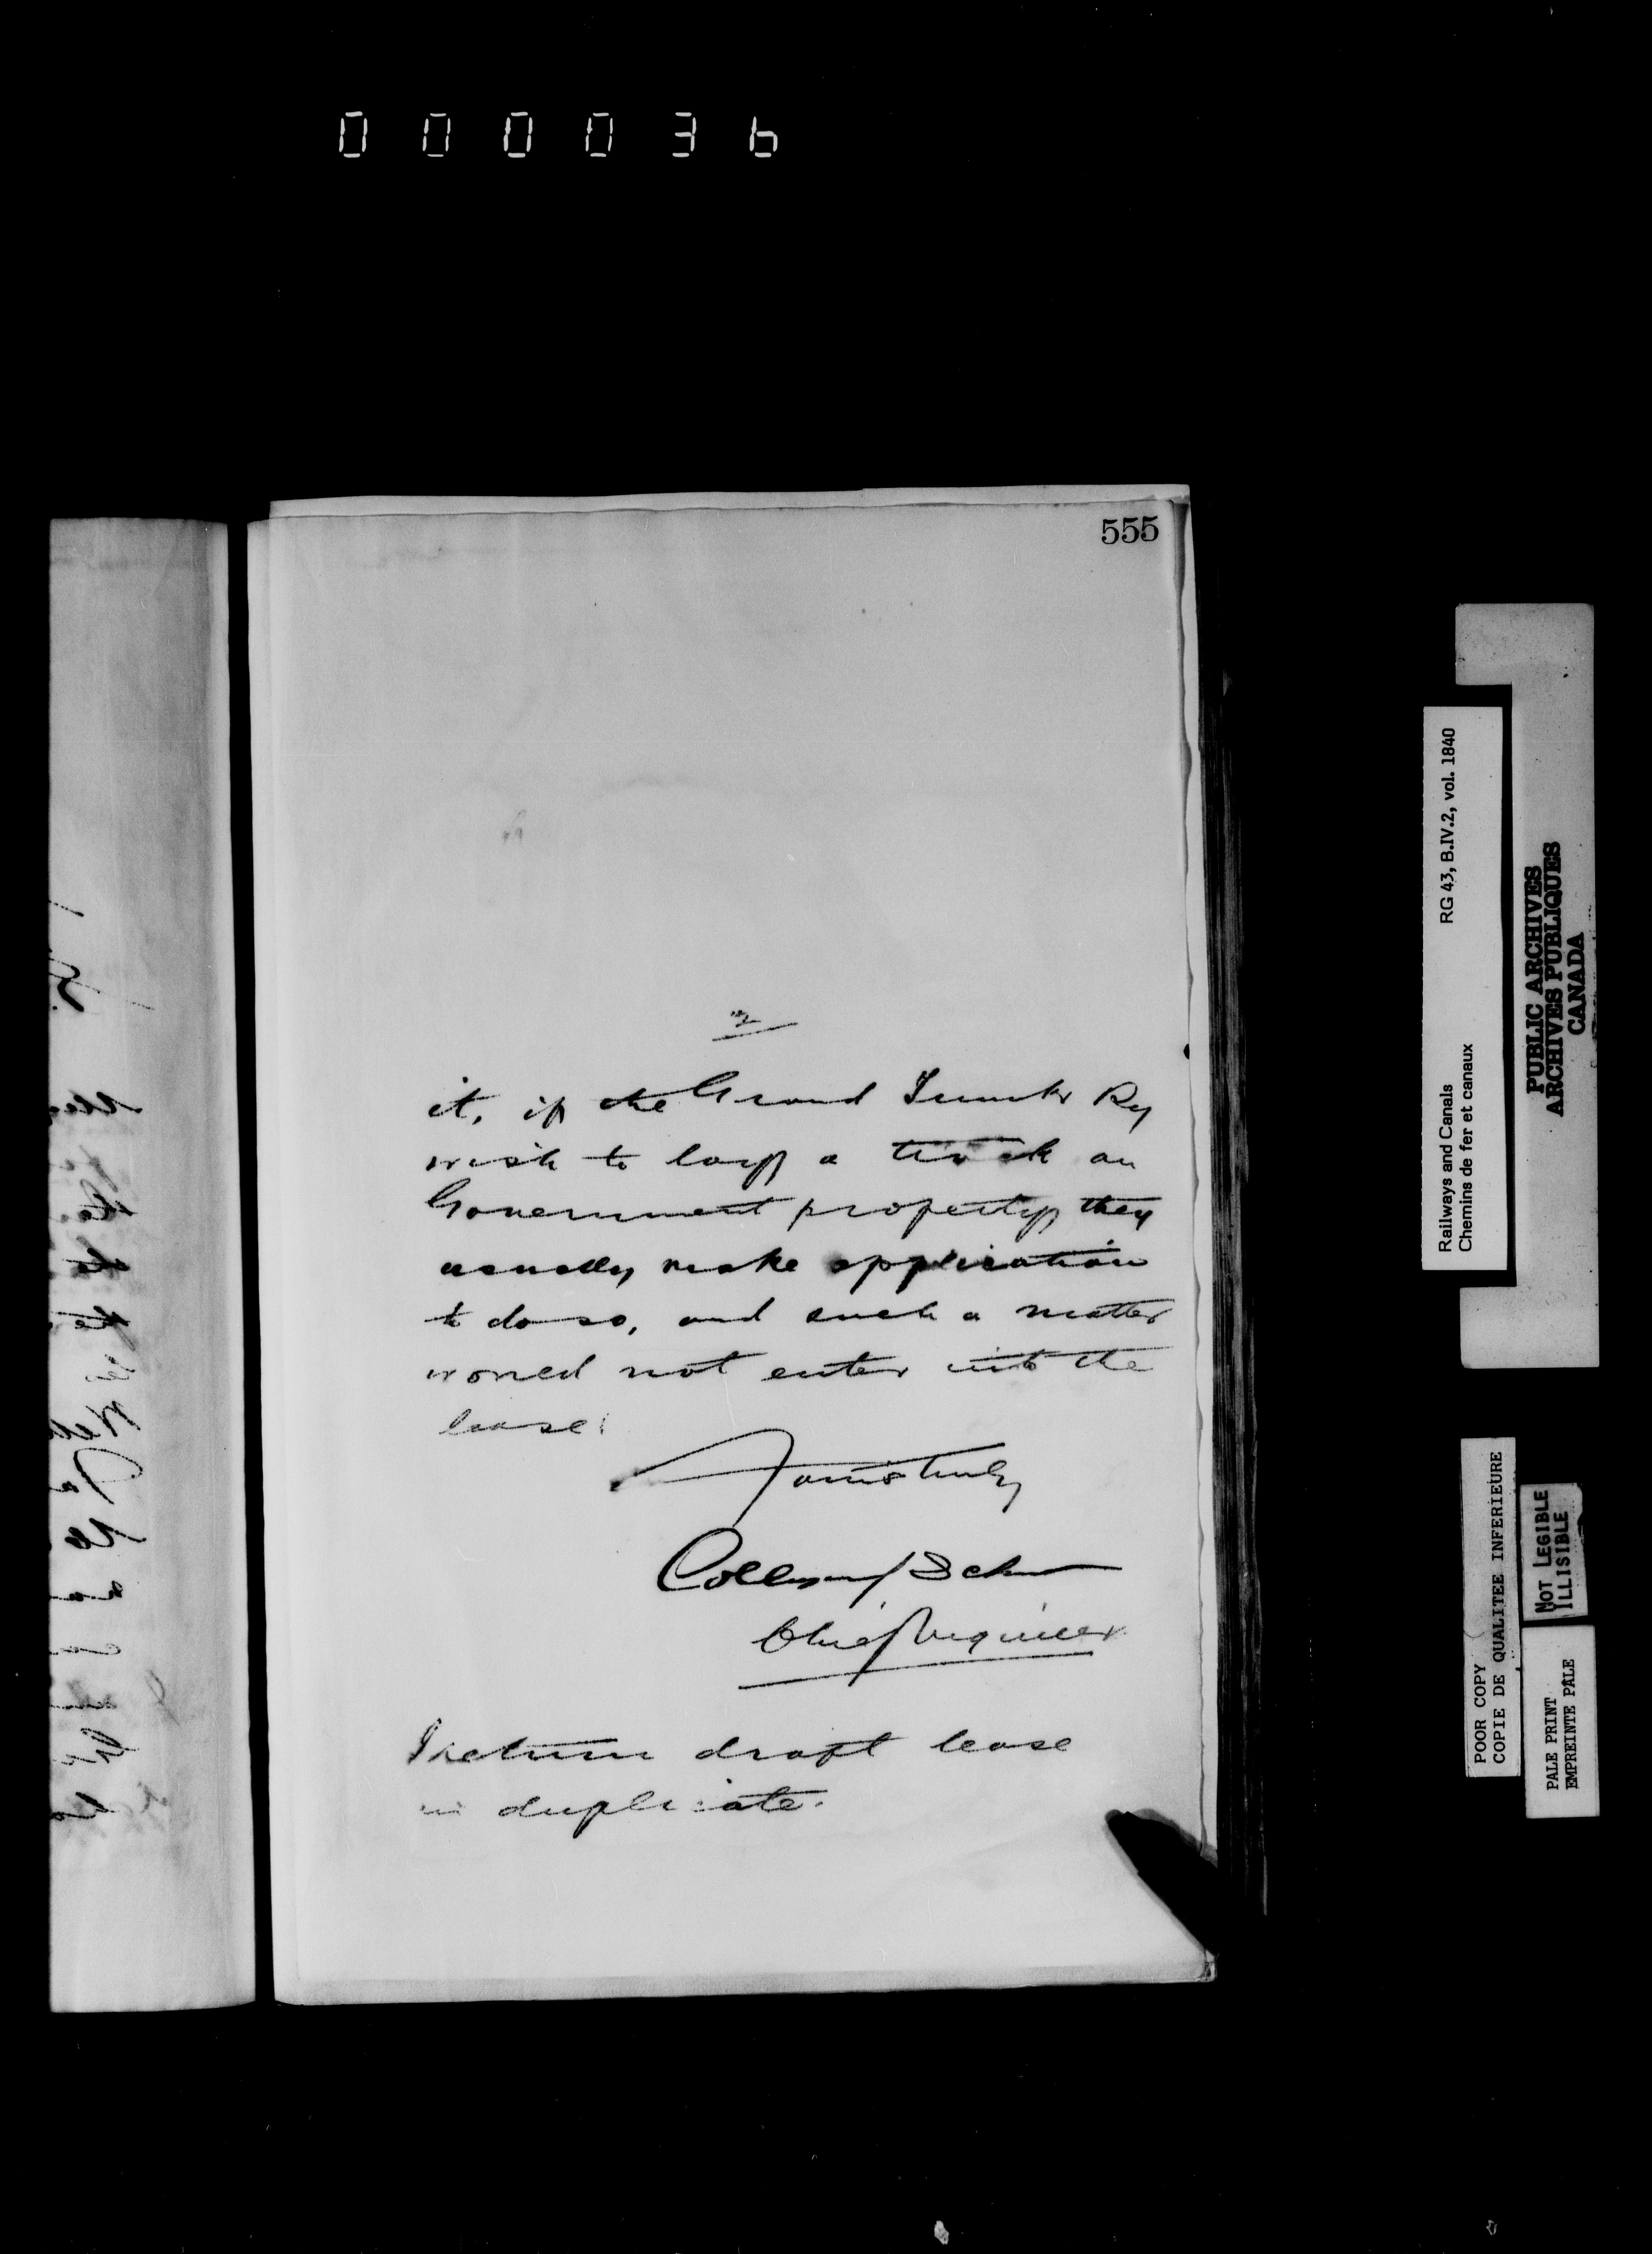 000036
555
2
it, if the Grand Trunk Ry
wish to lay a track on
Government property they
usually make application
to do so, and such a matter
would not enter into the
lease.
Yours truly
Collingwood Schreiber
Chief Engineer
I return draft lease
in duplicate.
Railways and Canals RG 43, B.IV.2, vol. 1840
Chemins de fer et canaux
PUBLIC ARCHIVES
ARCHIVES PUBLIQUES
CANADA
POOR COPY
COPIE DE QUALITEE INFERIEURE
NOT LEGIBLE
ILLISIBLE
PALE PRINT
EMPREINTE PALE